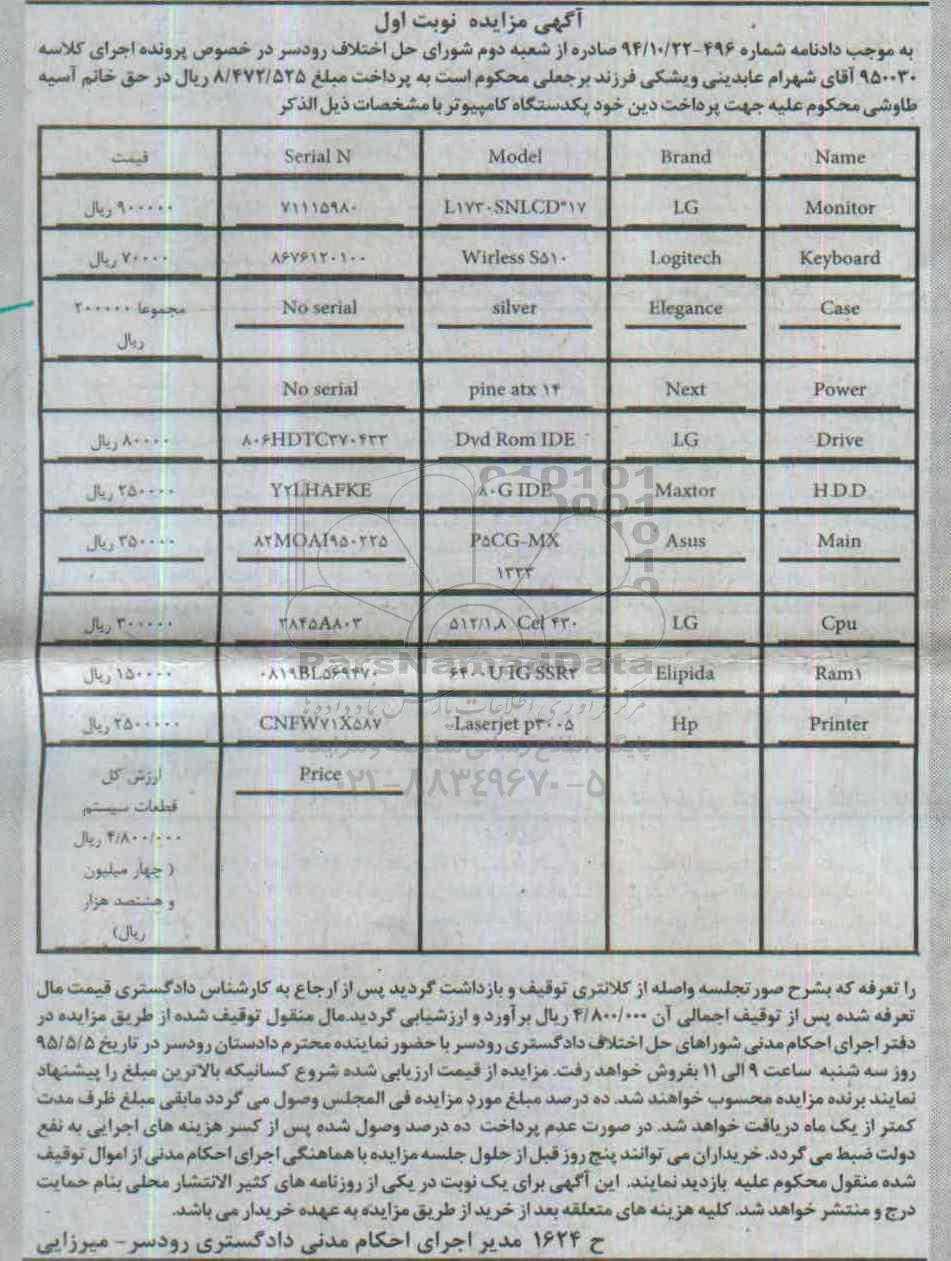 آگهی مزایده نوبت اول
به موجب دادنامه شماره ۴۹۶-۹۴/۱۰/۲۲ صادره از شعبه دوم شورای حل اختلاف رودسر در خصوص پرونده اجرای کلاسه
۹۵۰۰۳۰ آقای شهرام عابدینی ویشکی فرزند برجعلی محکوم است به پرداخت مبلغ ۸/۴۷۲/۵۲۵ ریال در حق خانم آسیه
طاوشی محکوم علیه جهت پرداخت دین خود یکدستگاه کامپیوتر با مشخصات ذیل الذکر
Name Brand Model Serial N قیمت
Monitor LG L۱۷۳۰SNLCD"۱۷ ۷۱۱۱۵۹۸۰ ۹۰۰۰۰۰ ریال
Keyboard Logitech Wirless S۵۱۰ ۸۶۷۶۱۲۰۱۰۰ ۷۰۰۰۰ ریال
Case Elegance silver No serial مجموعا ۲۰۰۰۰۰
ریال
Power Next pine atx ۱۴ No serial
Drive LG Dvd Rom IDE ۸۰۶HDTC۳۷۰۴۳۳ ۸۰۰۰۰ ریال
H.D.D Maxtor ۸۰G IDE Y۲LHAFKE ۲۵۰۰۰۰ ریال
Main Asus P۵CG-MX ۸۲MOAI۹۵۰۲۲۵ ۳۵۰۰۰۰ ریال
۱۳۳۳
Cpu LG ۵۱۲/۱,۸ Cel ۴۳۰ ۳۸۴۵A۸۰۳ ۳۰۰۰۰۰ ریال
Ram۱ Elipida ۶۴۰۰U IG SSR۲ ۰۸۱۹BL۵۶۹۴۷۰ ۱۵۰۰۰۰ ریال
Printer Hp Laserjet p۳۰۰۵ CNFW۷۱X۵۸۷ ۲۵۰۰۰۰۰ ریال
Price ارزش کل
قطعات سیستم
۴/۸۰۰/۰۰۰ ریال
( چهار میلیون
و هشتصد هزار
ریال)
را تعرفه که بشرح صورتجلسه واصله از کلانتری توقیف و بازداشت گردید پس از ارجاع به کارشناس دادگستری قیمت مال
تعرفه شده پس از توقیف اجمالی آن ۴/۸۰۰/۰۰۰ ریال برآورد و ارزشیابی گردید.مال منقول توقیف شده از طریق مزایده در
دفتر اجرای احکام مدنی شوراهای حل اختلاف دادگستری رودسر با حضور نماینده محترم دادستان رودسر در تاریخ ۹۵/۵/۵
روز سه شنبه ساعت ۹ الی ۱۱ بفروش خواهد رفت. مزایده از قیمت ارزیابی شده شروع کسانیکه بالاترین مبلغ را پیشنهاد
نمایند برنده مزایده محسوب خواهند شد. ده درصد مبلغ مورد مزایده فی المجلس وصول می گردد مابقی مبلغ ظرف مدت
کمتر از یک ماه دریافت خواهد شد. در صورت عدم پرداخت ده درصد وصول شده پس از کسر هزینه های اجرایی به نفع
دولت ضبط می گردد. خریداران می توانند پنج روز قبل از حلول جلسه مزایده با هماهنگی اجرای احکام مدنی از اموال توقیف
شده منقول محکوم علیه بازدید نمایند. این آگهی برای یک نوبت در یکی از روزنامه های کثیر الانتشار محلی بنام حمایت
درج و منتشر خواهد شد. کلیه هزینه های متعلقه بعد از خرید از طریق مزایده به عهده خریدار می باشد.
ح ۱۶۲۴ مدیر اجرای احکام مدنی دادگستری رودسر - میرزایی
ParsNamadData
۰۲۱-۸۸۳۴۹۶۷۰-۵